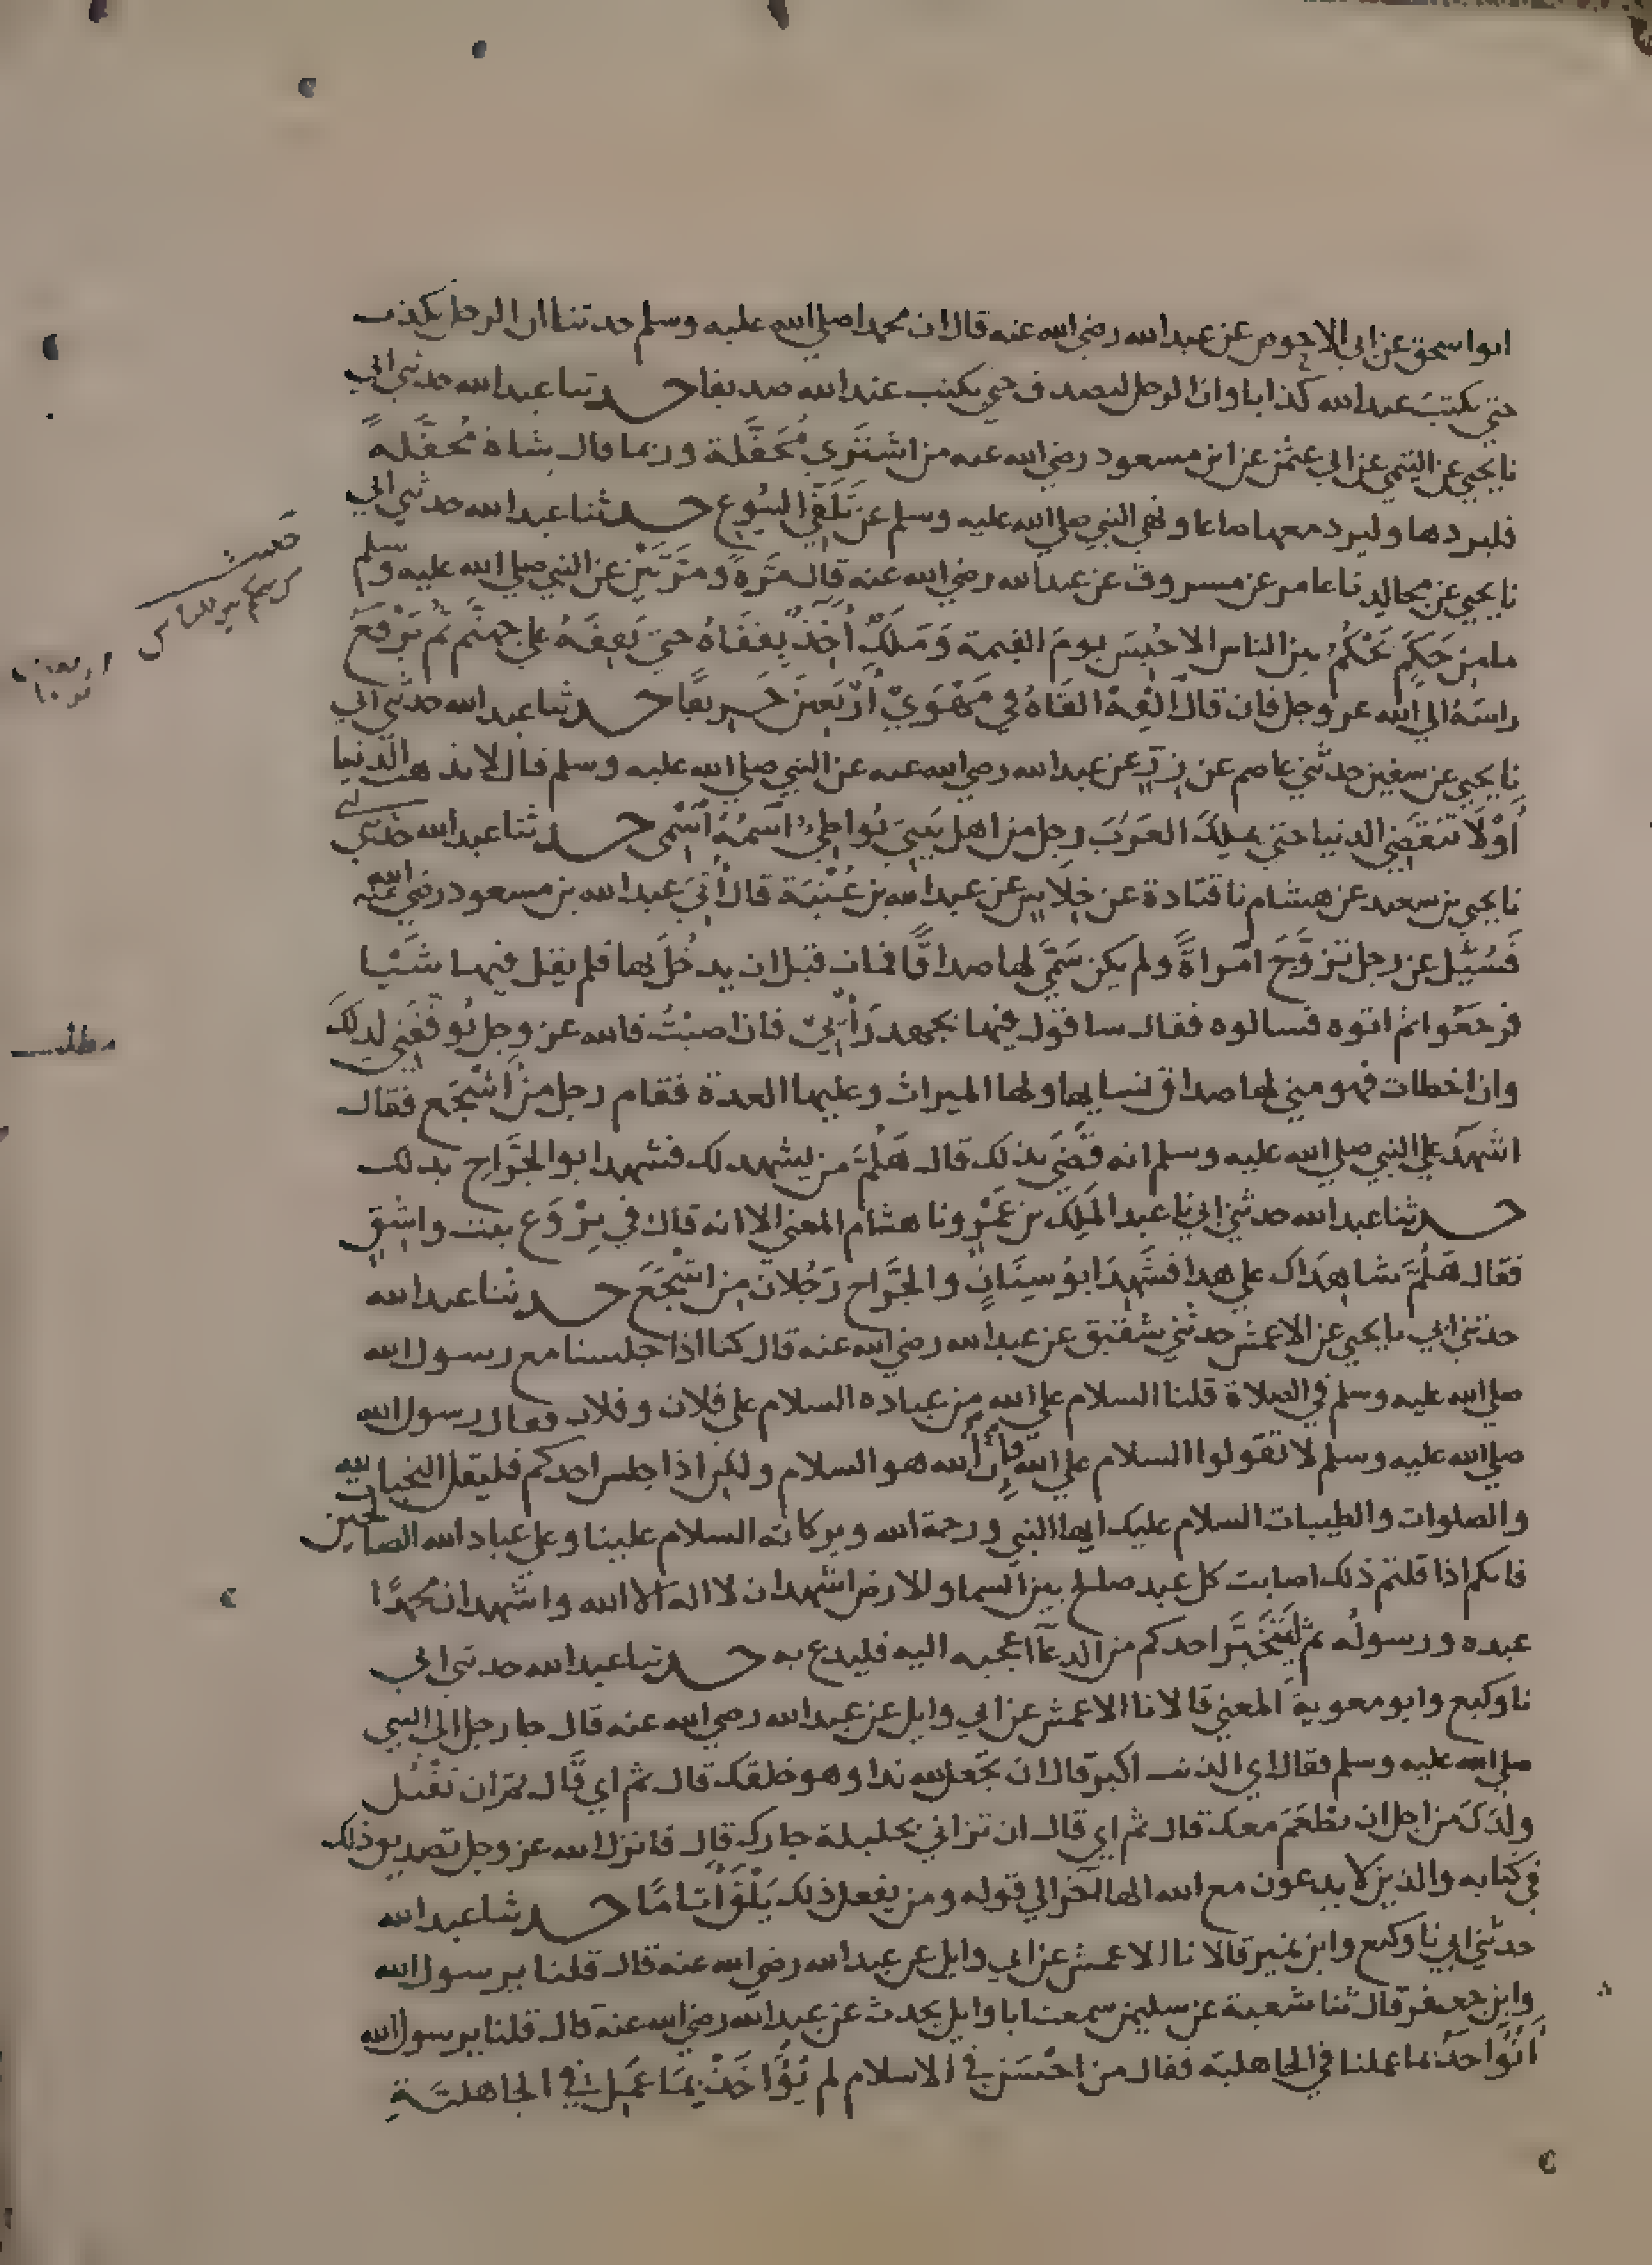 ابو اسحق عن ابي الاحوص عن عبد الله رضي الله عنه قال ان محمدا صلي الله عليه وسلم حدثنا ان الرجل يكذب
حتي يكتب عند الله كذابا وان الرجل ليصدق حتي يكتب عند الله صديقا حدثنا عبد الله حدثني ابي
نا يحيي عن التيمي عن ابي عثمن عن ابن مسعود رضي الله عنه من اشتري مُحَفَّلة وربما قال شاة مُحفَّلةً
فليردها وليرد معها صاعا ونهي النبي صلي الله عليه وسلم عن تَلَقِّي البُيُوع حدثنا عبد الله حدثني ابي
نا يحيي عن مجالد نا عامر عن مسروق عن عبد الله رضي الله عنه قال مَرَّةً ومَرَّتَيْنِ عن النبي صلي الله عليه وسلم
ما من حَكَمٍ يَحْكُمُ بين الناس الا حُبِسَ يومَ القيمة وَمَلَكٌ اٰخِذٌ بِقَفَاهُ حتي يَقِفَهُ علي جهنَّم ثم يَرْفَعُ
راسَهُ الي الله عز وجل فان قال اَلْقِهْ القَاهُ في مَهْوًي اَرْبَعِينَ خَرِيفًا حدثنا عبد الله حدثني ابي
نا يحيي عن سفين حدثني عاصم عن زِرٍّ عن عبد الله رضي الله عنه عن النبي صلي الله عليه وسلم قال لا تذهب الدنيا
اَوْ لَا تَنْقَضِي الدنيا حتي يملك العَرَبَ رجل من اهل بَيْتِي يُواطِئُ اسمُهُ اسْمِي حدثنا عبد الله حدثني ابي
نا يحيي بن سعيد عن هشام نا قتادة عن خِلَاسٍ عن عبد الله بن عُتْبَة قال اُتِيَ عبد الله بن مسعود رضي الله عنه
فَسُئِلَ عن رجل تزوَّجَ امراةً ولم يكن سَمَّي لها صداقًا فمات قبل ان يدخُلَ بها فلم يقل فيها شَيْيا
فرجعوا ثم اتوه فسالوه فقال ساقول فيها بجهد رَاْيِي فان اصبْتُ فالله عز وجل يُوَفِّقُنِي لذلك
وان اخطات فهو مني لها صداق نسايها ولها الميراث وعليها العدة فقام رجل من اَشْجَع فقال
اشهدُ علي النبي صلي الله عليه وسلم انه قَضَي بذلك قال هَلُمَّ من يشهد لك فشهد ابو الجَرَّاحِ بذلك
حدثنا عبد الله حدثني ابي نا عبد المَلِك بن عَمْرٍو نا هشام المعني الا انه قال في بِرْوَع بنت واشِقٍ
فقال هَلُمَّ شاهِدَاك علي هذا فشَهِدَ ابو سِنَانٍ والجَرَّاح رَجُلانِ مِن اشْجَعَ حدثنا عبد الله
حدثني ابي نا يحيي عن الاعمش حدثني شقيق عن عبد الله رضي الله عنه قال كنا اذا جلسنا مع رسول الله
صلي الله عليه وسلم في الصلاة قلنا السلام علي الله من عباده السلام علي فلان وفلان فقال رسول الله
صلي الله عليه وسلم لا تقولوا السلام علي الله فاِنَّ الله هو السلام ولكن اذا جلس احدكم فليقل التحيات لله
والصلوات والطيبات السلام عليك ايها النبي ورحمة الله وبركاته السلام علينا وعلي عباد الله الصالحين
فانكم اذا قلتم ذلك اصابت كل عبد صالح بين السماء والارض اشهد ان لا اله الا الله واشهد ان محمدًا
عبده ورسوله ثم لِيَتَخَيَّر احدكم من الدعآ اعجبه اليه فليدع به حدثنا عبد الله حدثني ابي
نا وكيع وابو معوية المعني قالا نا الاعمش عن ابي وايل عن عبد الله رضي الله عنه قال جا رجل الي النبي
صلي الله عليه وسلم فقال اي الذنب اكبر قال ان تجعل لله ندا وهو خلقك قال ثم اي قال ثم ان تقتل
ولدَكَ من اجل ان يطْعَمَ معك قال ثم اي قال ان تزاني بحليلة جارك قال فانزل الله عز وجل تصديق ذلك
في كتابه والذين لا يدعون مع الله الها اٰخر الي قوله ومن يفعل ذلك يَلْقَ اَثامًا حدثنا عبد الله
حدثني ابي نا وكيع وابن نمير قالا نا الاعمش عن ابي وايل عن عبد الله رضي الله عنه قال قلنا يرسول الله
وابن جعفر قال ثنا شعبة عن سليمن سمعت ابا وايل يحدث عن عبد الله رضي الله عنه قال قلنا يرسول الله
اَنُؤَاخَذُ بما عملنا في الجاهلية فقال من احْسَنَ في الاسلام لم يُؤَاخَذْ بِمَا عَمِلَ في الجاهليَّةِ
مطلب